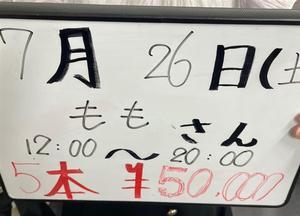 7月 26日(土
もも さん
12:00 〜 20:00
5本 ¥50,000